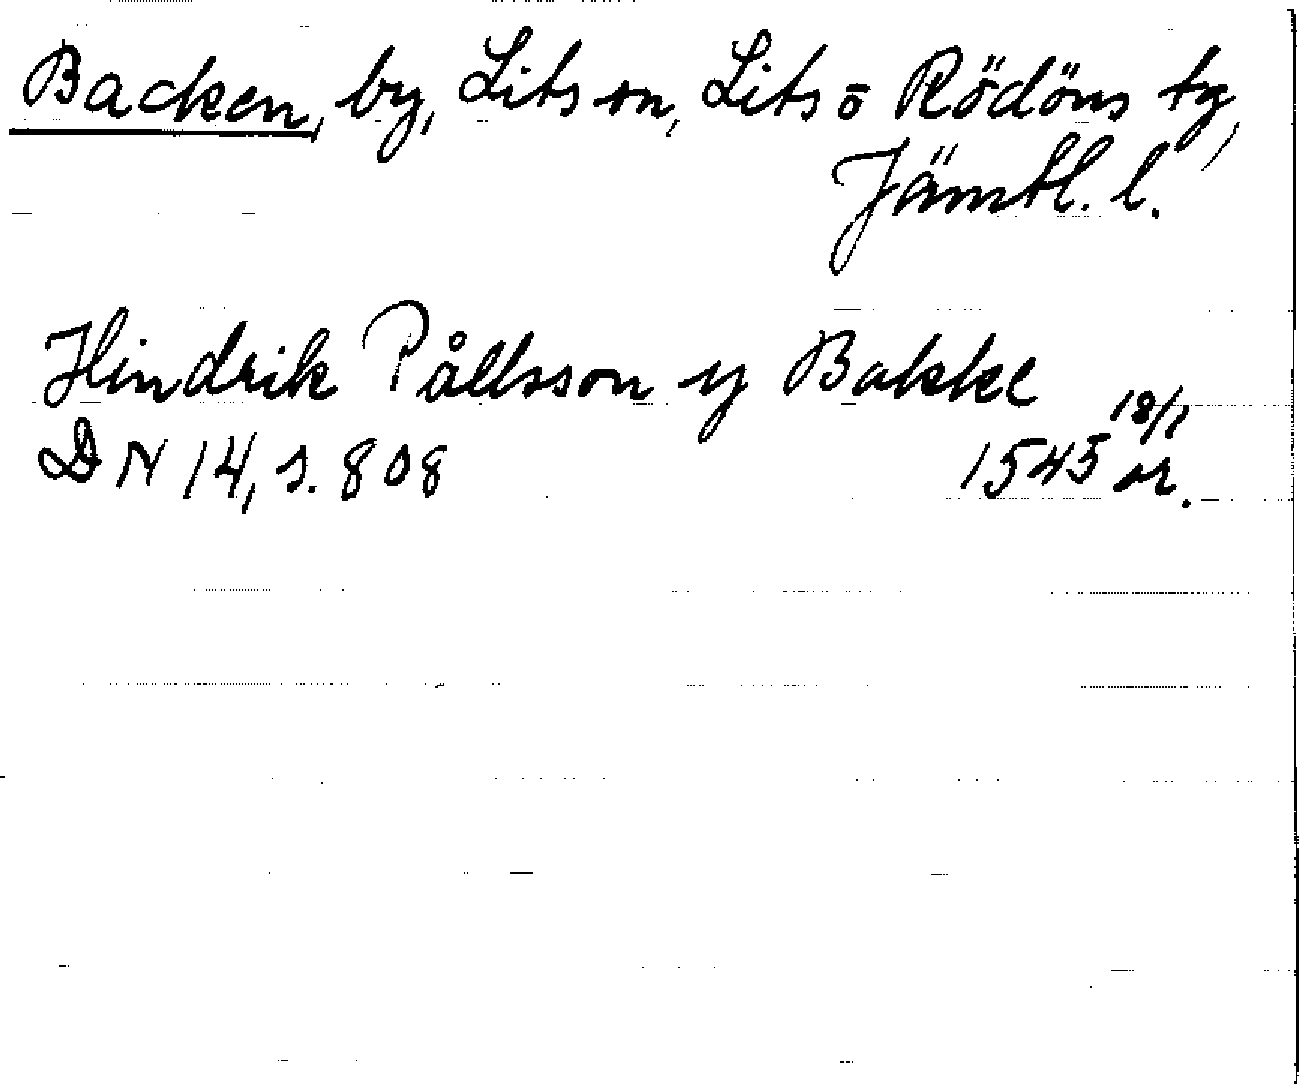 Backen, by, Lits sn, Lits o Rödöns tg,
Jämtl. l.
Hindrik Pållsson y Bakke
18/1
DN 14, s. 808 1545 or.